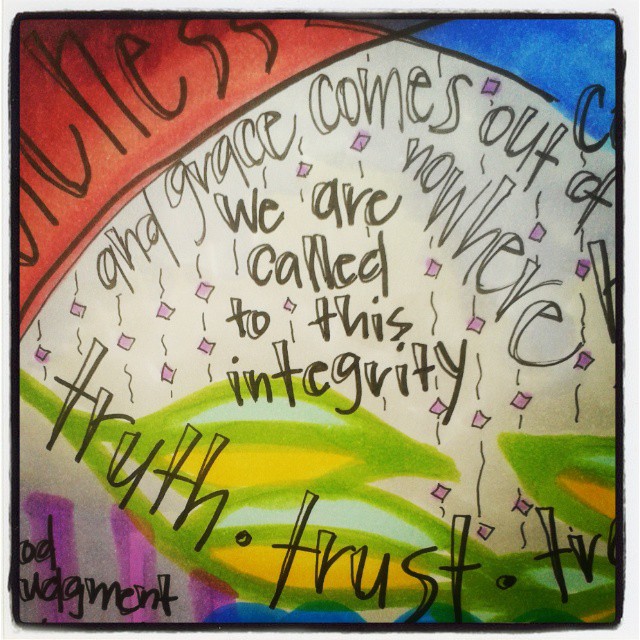 and grace comes out of nowhere
we are
called
to this
integrity
truth. trust.
judgment